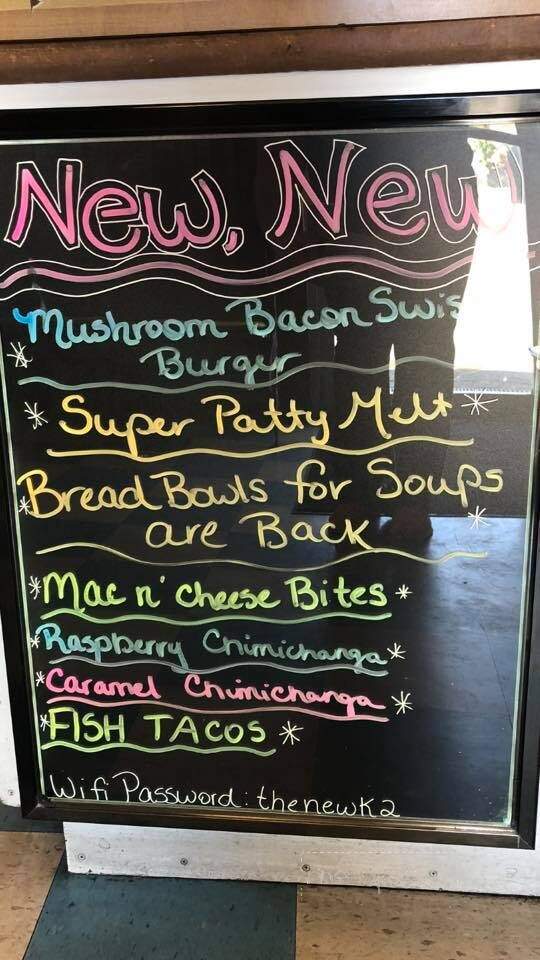 New, New
Mushroom Bacon Swis
Burger
Super Patty Melt
Bread Bowls for Soups
are Back
Mac n' cheese Bites
Raspberry Chimichanga
Caramel Chimichanga
FISH TACOS
Wifi Password: thenewk2